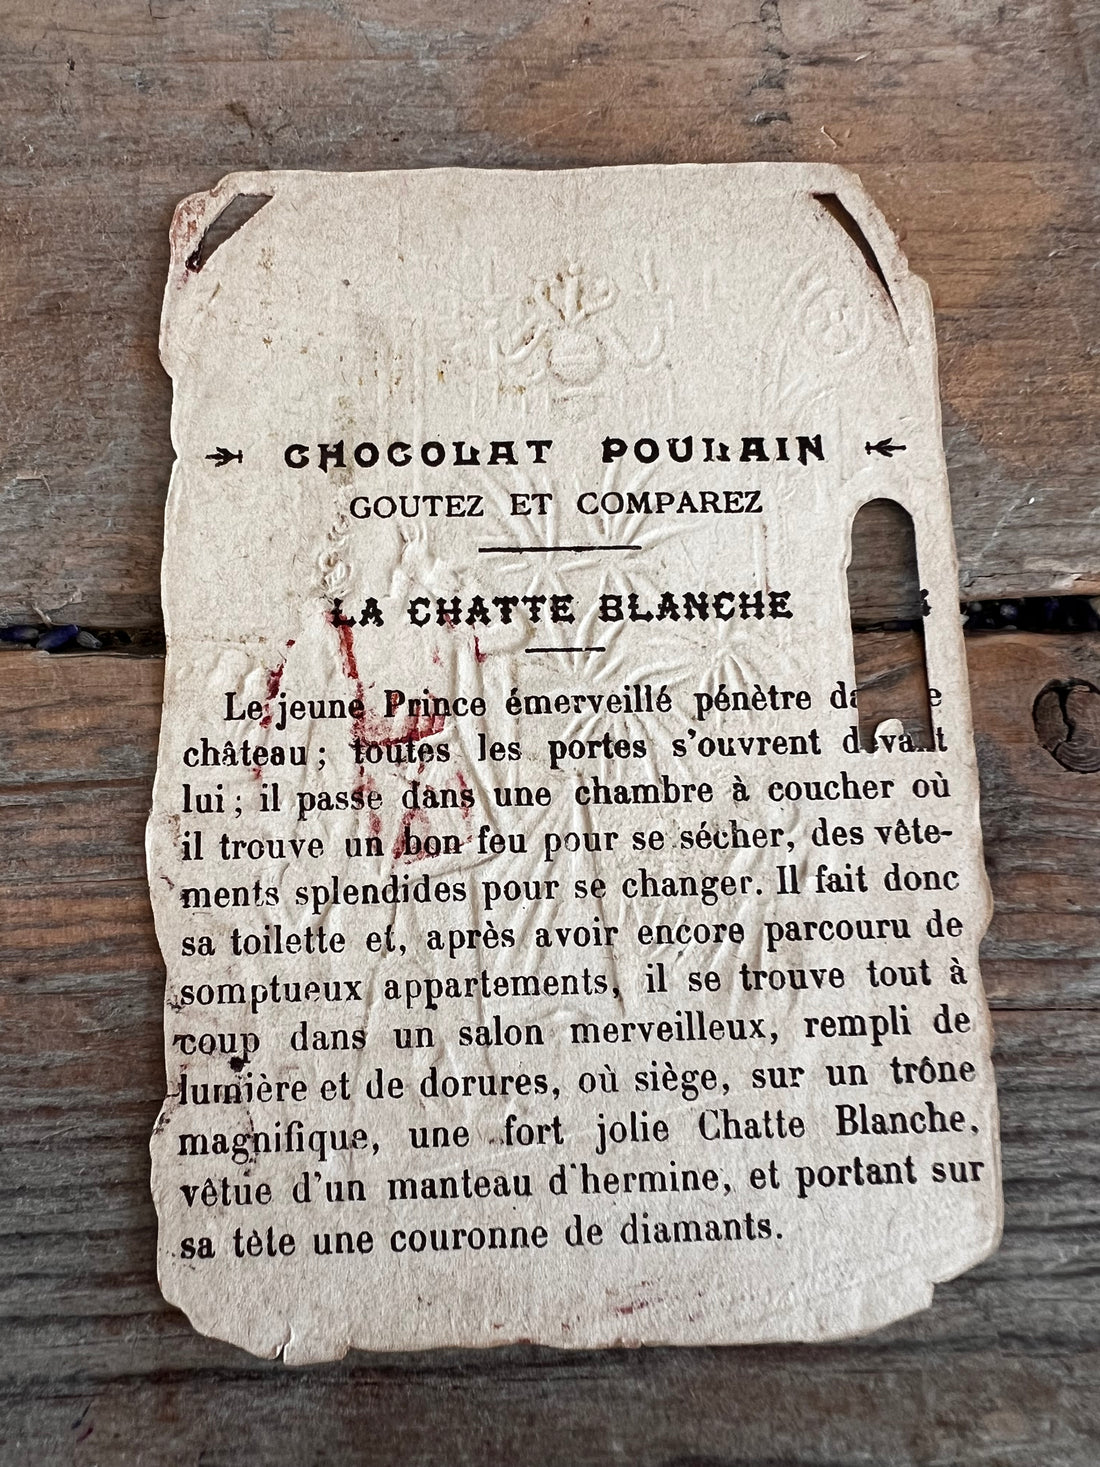 CHOCOLAT POULAIN
GOUTEZ ET COMPAREZ
LA CHATTE BLANCHE
Le jeune Prince émerveillé pénètre
château ; toutes les portes s'ouvrent devant
lui ; il passe dans une chambre à coucher où
il trouve un bon feu pour se sécher, des vête-
ments splendides pour se changer. Il fait donc
sa toilette et, après avoir encore parcouru de
somptueux appartements, il se trouve tout à
coup dans un salon merveilleux, rempli de
lumière et de dorures, où siège, sur un trône
magnifique, une fort jolie Chatte Blanche,
vêtue d'un manteau d'hermine, et portant sur
sa tète une couronne de diamants.